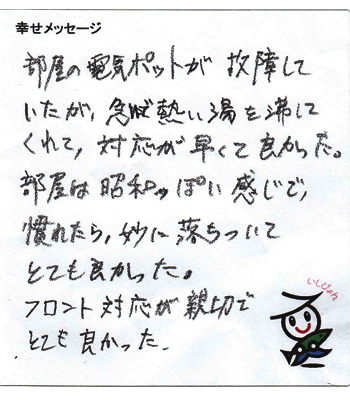 幸せメッセージ
部屋の電気ポットが故障して
いたが、急ぎ熱い湯を沸して
くれて、対応が早くて良かった。
部屋は昭和っぽい感じで、
慣れたら、妙に落ちついて
とても良かった。
フロント対応が親切で
とても良かった.
いしぴょん